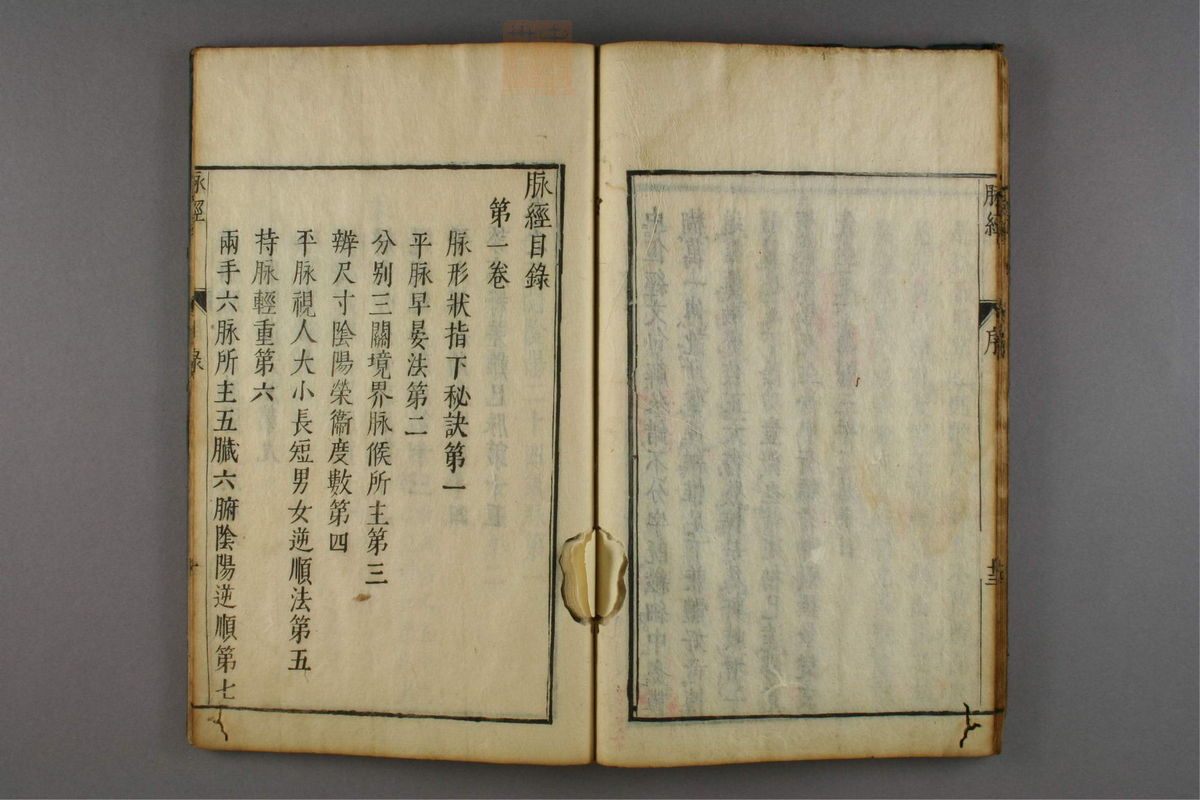 脉經
序
脉經目錄
第一卷
脉形狀指下秘訣第一
平脉早晏法第二
分别三關境界脉候所主第三
辨尺寸陰陽榮衞度數第四
平脉視人大小長短男女逆順法第五
持脉輕重第六
兩手六脉所主五臟六腑陰陽逆順第七
脉經
目錄